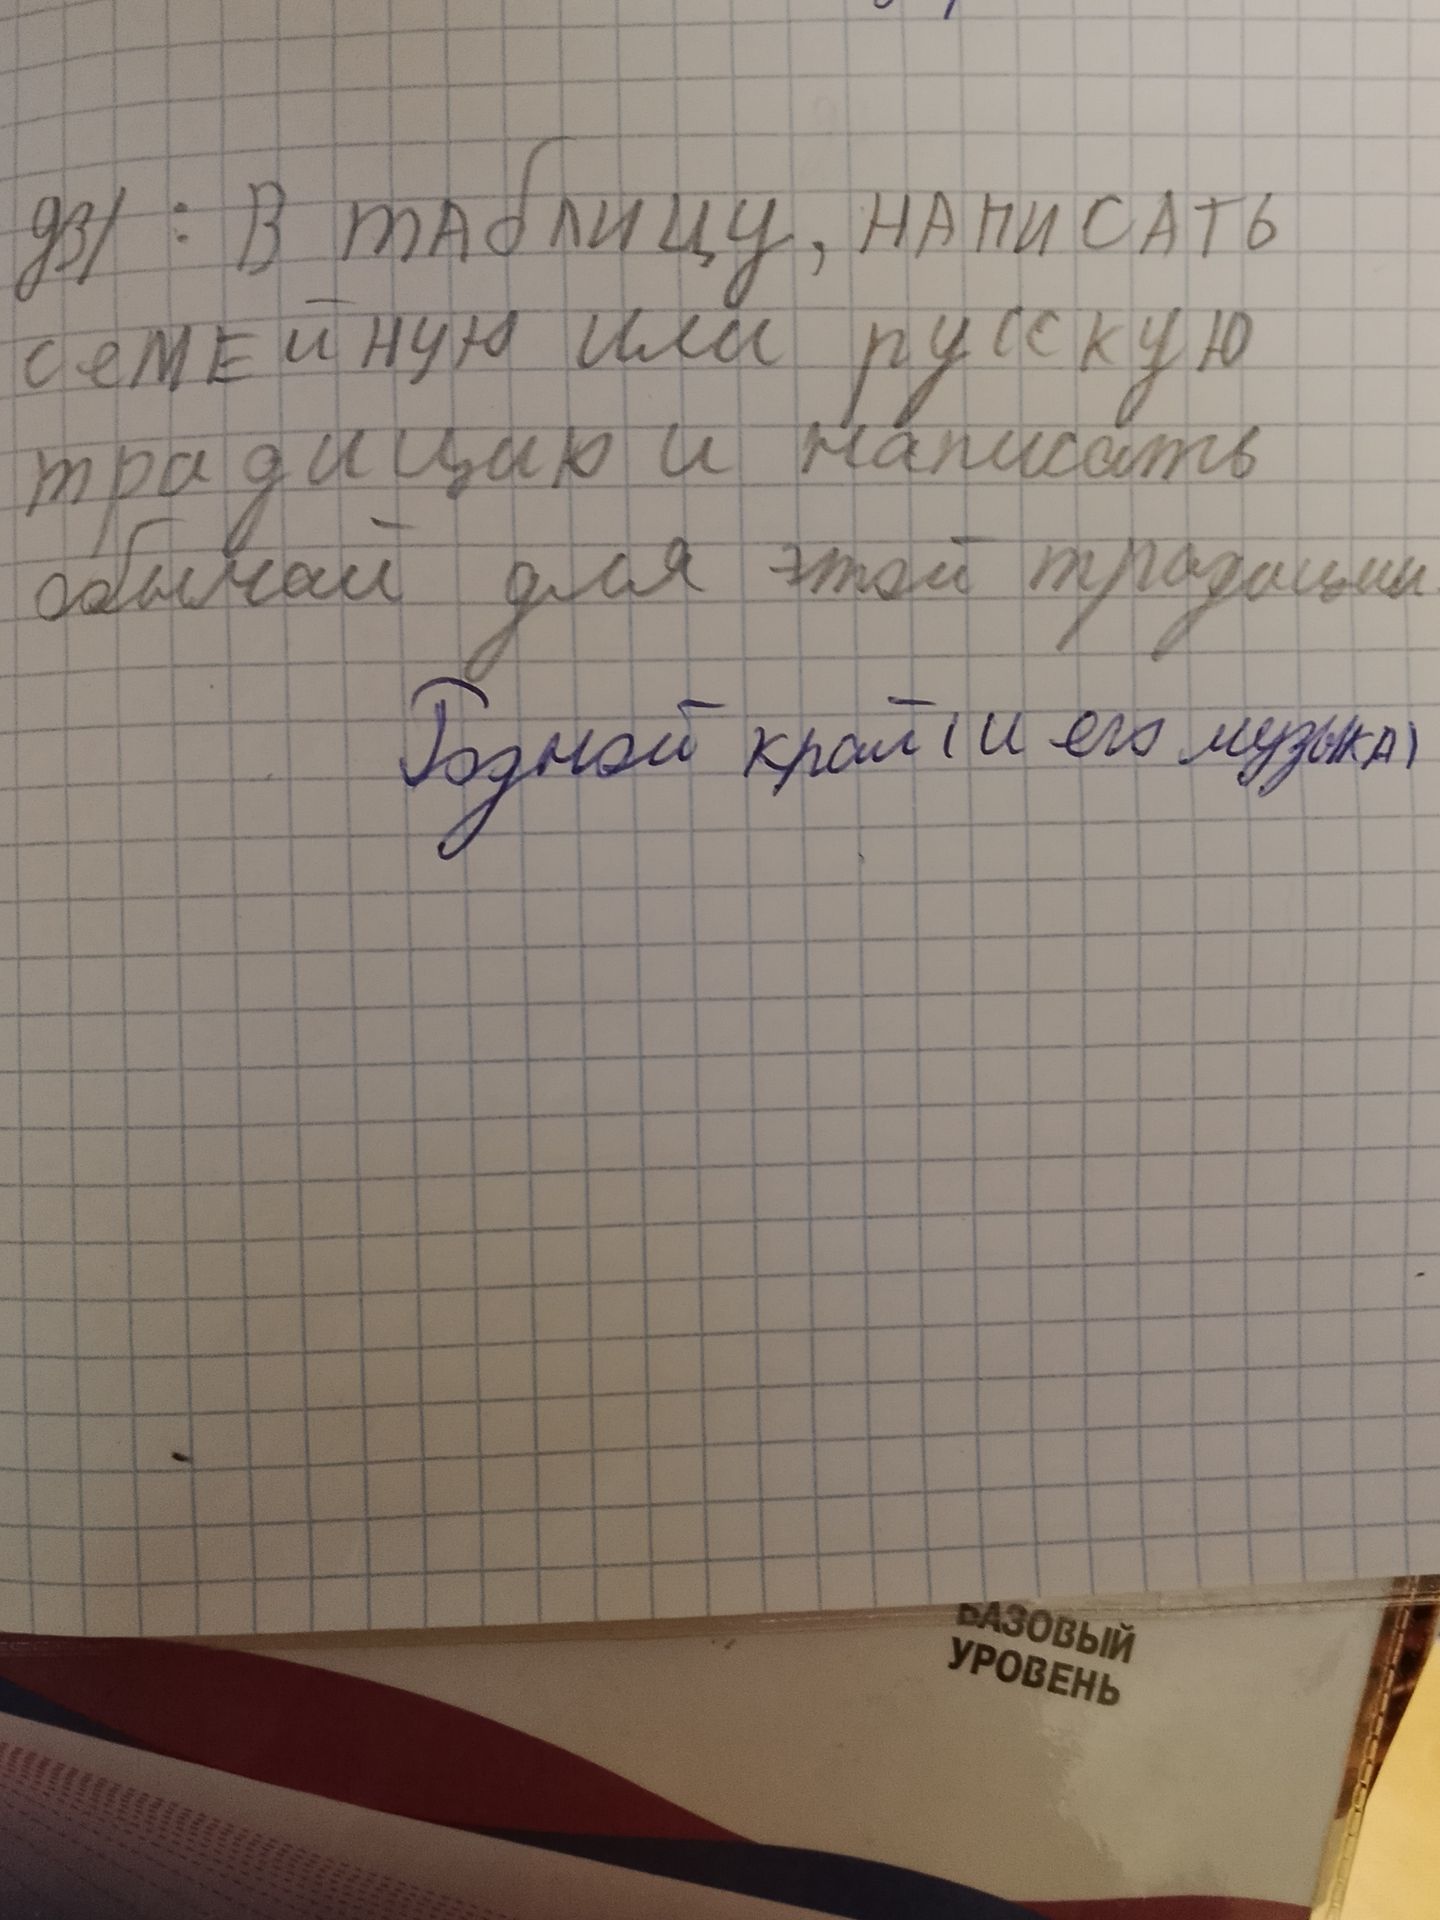 дз/: В таблицу, написать
семейную или русскую
традицию и написать
обычай для этой традиции.
Родной край (и его музыка)
БАЗОВЫЙ
УРОВЕНЬ